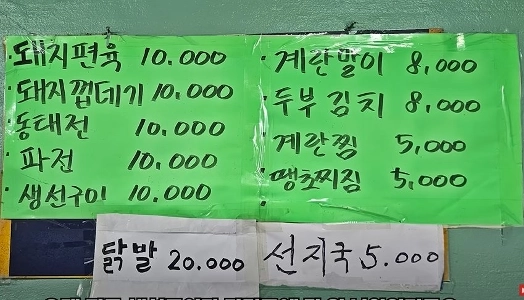 · 돼지편육 10.000
· 돼지껍데기 10.000
· 동태전 10.000
· 파전 10.000
· 생선구이 10.000
· 계란말이 8,000
· 두부김치 8,000
· 계란찜 5,000
· 땡초찌짐 5,000
닭발 20.000
선지국 5.000